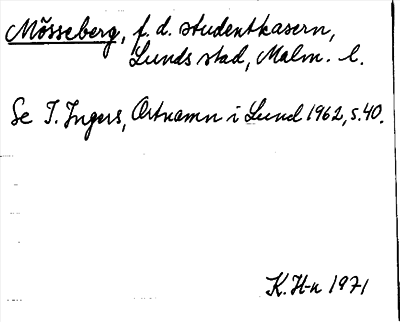 Mösseberg, f. d. studentkasern,
Lunds stad, Malm. l.
Se I. Ingers, Ortnamn i Lund 1962, s. 40.
K. H-n 1971